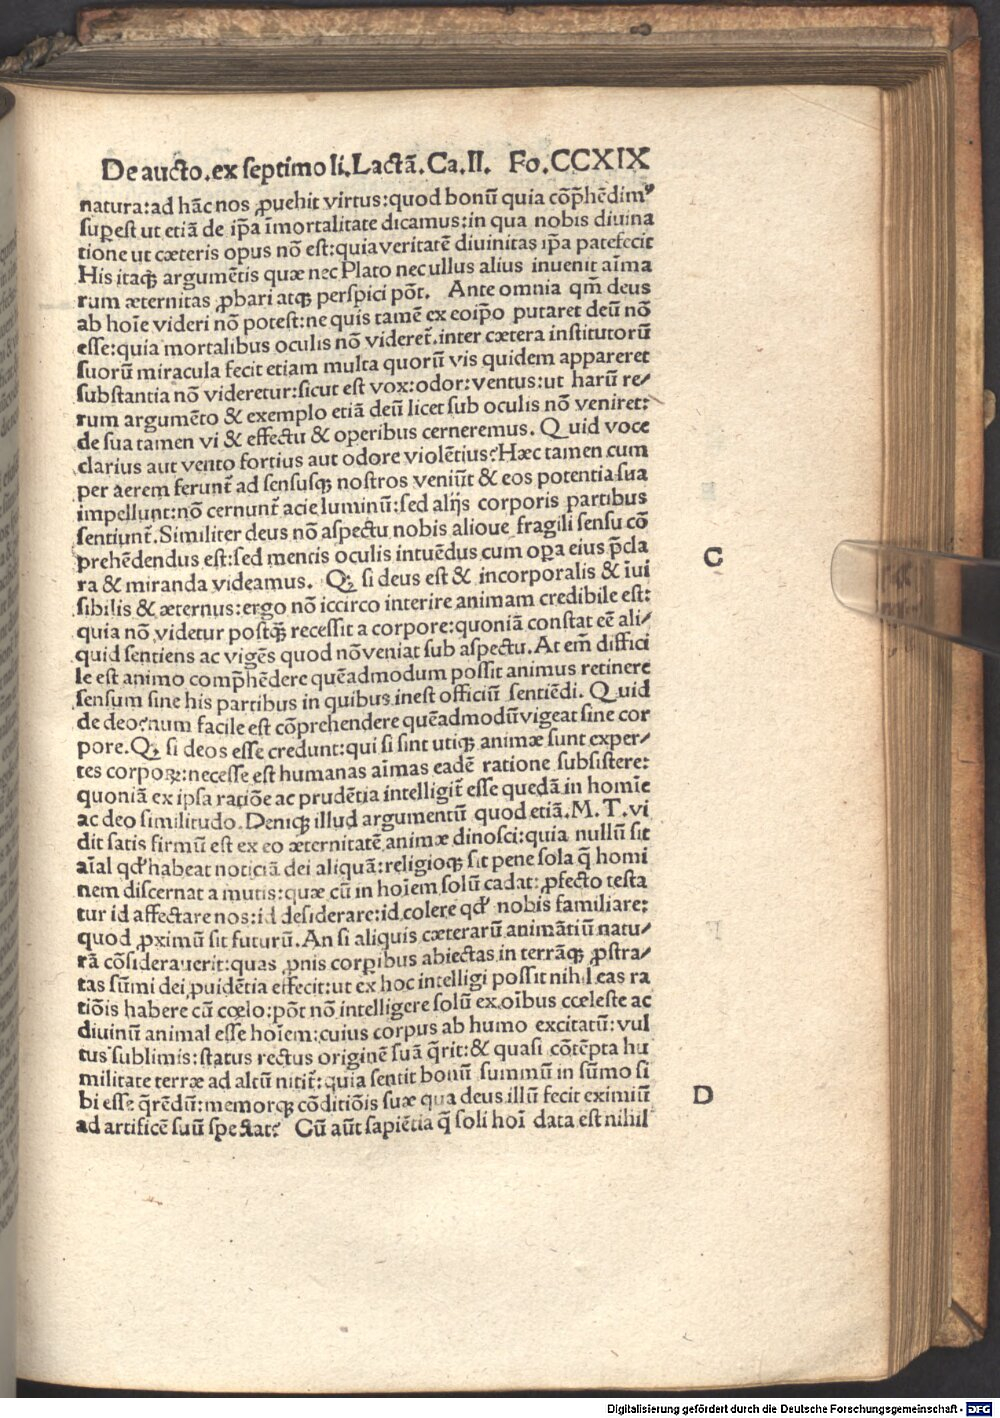 De aucto.ex septimo li.Lactã.Ca.II. Fo.CCXIX
natura:ad hãc nos ꝓuehit virtus:quod bonũ quia cõp̃hẽdimꝰ
supest ut etiã de ip̃a ĩmortalitate dicamus:in qua nobis diuina
tione ut cæteris opus nõ est:quia veritatẽ diuinitas ip̃a patefecit
His itaqꝫ argumẽtis quæ nec Plato nec ullus alius inuenit aĩma
rum æternitas ꝓbari atqꝫ perspici põt. Ante omnia qm̃ deus
ab hoĩe videri nõ potest:ne quis tamẽ ex eoip̃o putaret deũ nõ
esse:quia mortalibus oculis nõ videret̃.inter cætera institutorũ
suorũ miracula fecit etiam multa quorũ vis quidem appareret
substantia nõ videretur:sicut est vox:odor:ventus:ut harũ re/
rum argumẽto & exemplo etiã deũ licet sub oculis nõ veniret:
de sua tamen vi & effectu & operibus cerneremus. Quid voce
clarius aut vento fortius aut odore violẽtius?Hæc tamen cum
per aerem ferunt̃ ad sensusqꝫ nostros veniũt & eos potentia sua
impellunt:nõ cernunt̃ acie luminũ:sed alijs corporis partibus
sentiunt̃.Similiter deus nõ aspectu nobis alioue fragili sensu cõ
prehẽdendus est:sed mentis oculis intuẽdus cum opa eius p̃cla
C
ra & miranda videamus. Qꝫ si deus est & incorporalis & ĩui
sibilis & æternus:ergo nõ iccirco interire animam credibile est:
quia nõ videtur postqꝫ̃ recessit a corpore:quoniã constat eẽ ali/
quid sentiens ac vigẽs quod nõ veniat sub aspectu.At em̃ diffici
le est animo comp̃hẽdere quẽadmodum possit animus retinere
sensum sine his partibus in quibus inest officiũ sentiẽdi. Quid
de deo?num facile est cõprehendere quẽadmodũ vigeat sine cor
pore.Qꝫ si deos esse credunt:qui si sint utiqꝫ animæ sunt exper/
tes corpoꝝ:necesse est humanas aĩmas eadẽ ratione subsistere:
quoniã ex ipsa ratiõe ac prudẽtia intelligit̃ esse quedã in homĩe
ac deo similitudo.Deniqꝫ illud argumentũ quod etiã.M.T.vi
dit satis firmũ est ex eo æternitatẽ animæ dinosci:quia nullũ sit
aĩal qd̛ habeat noticiã dei aliquã:religioqꝫ sit pene sola q̃ homi
nem discernat a mutis:quæ cũ in hoĩem solũ cadat:ꝓfecto testa
tur id affectare nos:id desiderare:id colere qd̛ nobis familiare:
quod ꝓximũ sit futurũ.An si aliquis cæterarũ animãtiũ natu/
rã cõsiderauerit:quas ꝓnis corpibus abiectas in terrãqꝫ ꝓstra/
tas sũmi dei ꝓuidẽtia effecit:ut ex hoc intelligi possit nihil eas ra
tiõis habere cũ cœlo:põt nõ intelligere solũ ex oĩbus cœleste ac
diuinũ animal esse hoĩem:cuius corpus ab humo excitatũ:vul
tus sublimis:status rectus originẽ suã q̃rit:& quasi cõtẽpta hu
militate terræ ad altũ nitit̃:quia sentit bonũ summũ in sũmo si
bi esse q̃rẽdũ:memorqꝫ cõditiõis suæ qua deus illũ fecit eximiũ
D
ad artificẽ suũ spectat? Cũ aũt sapiẽtia q̃ soli hoĩ data est nihil
Digitalisierung gefördert durch die Deutsche Forschungsgemeinschaft - DFG